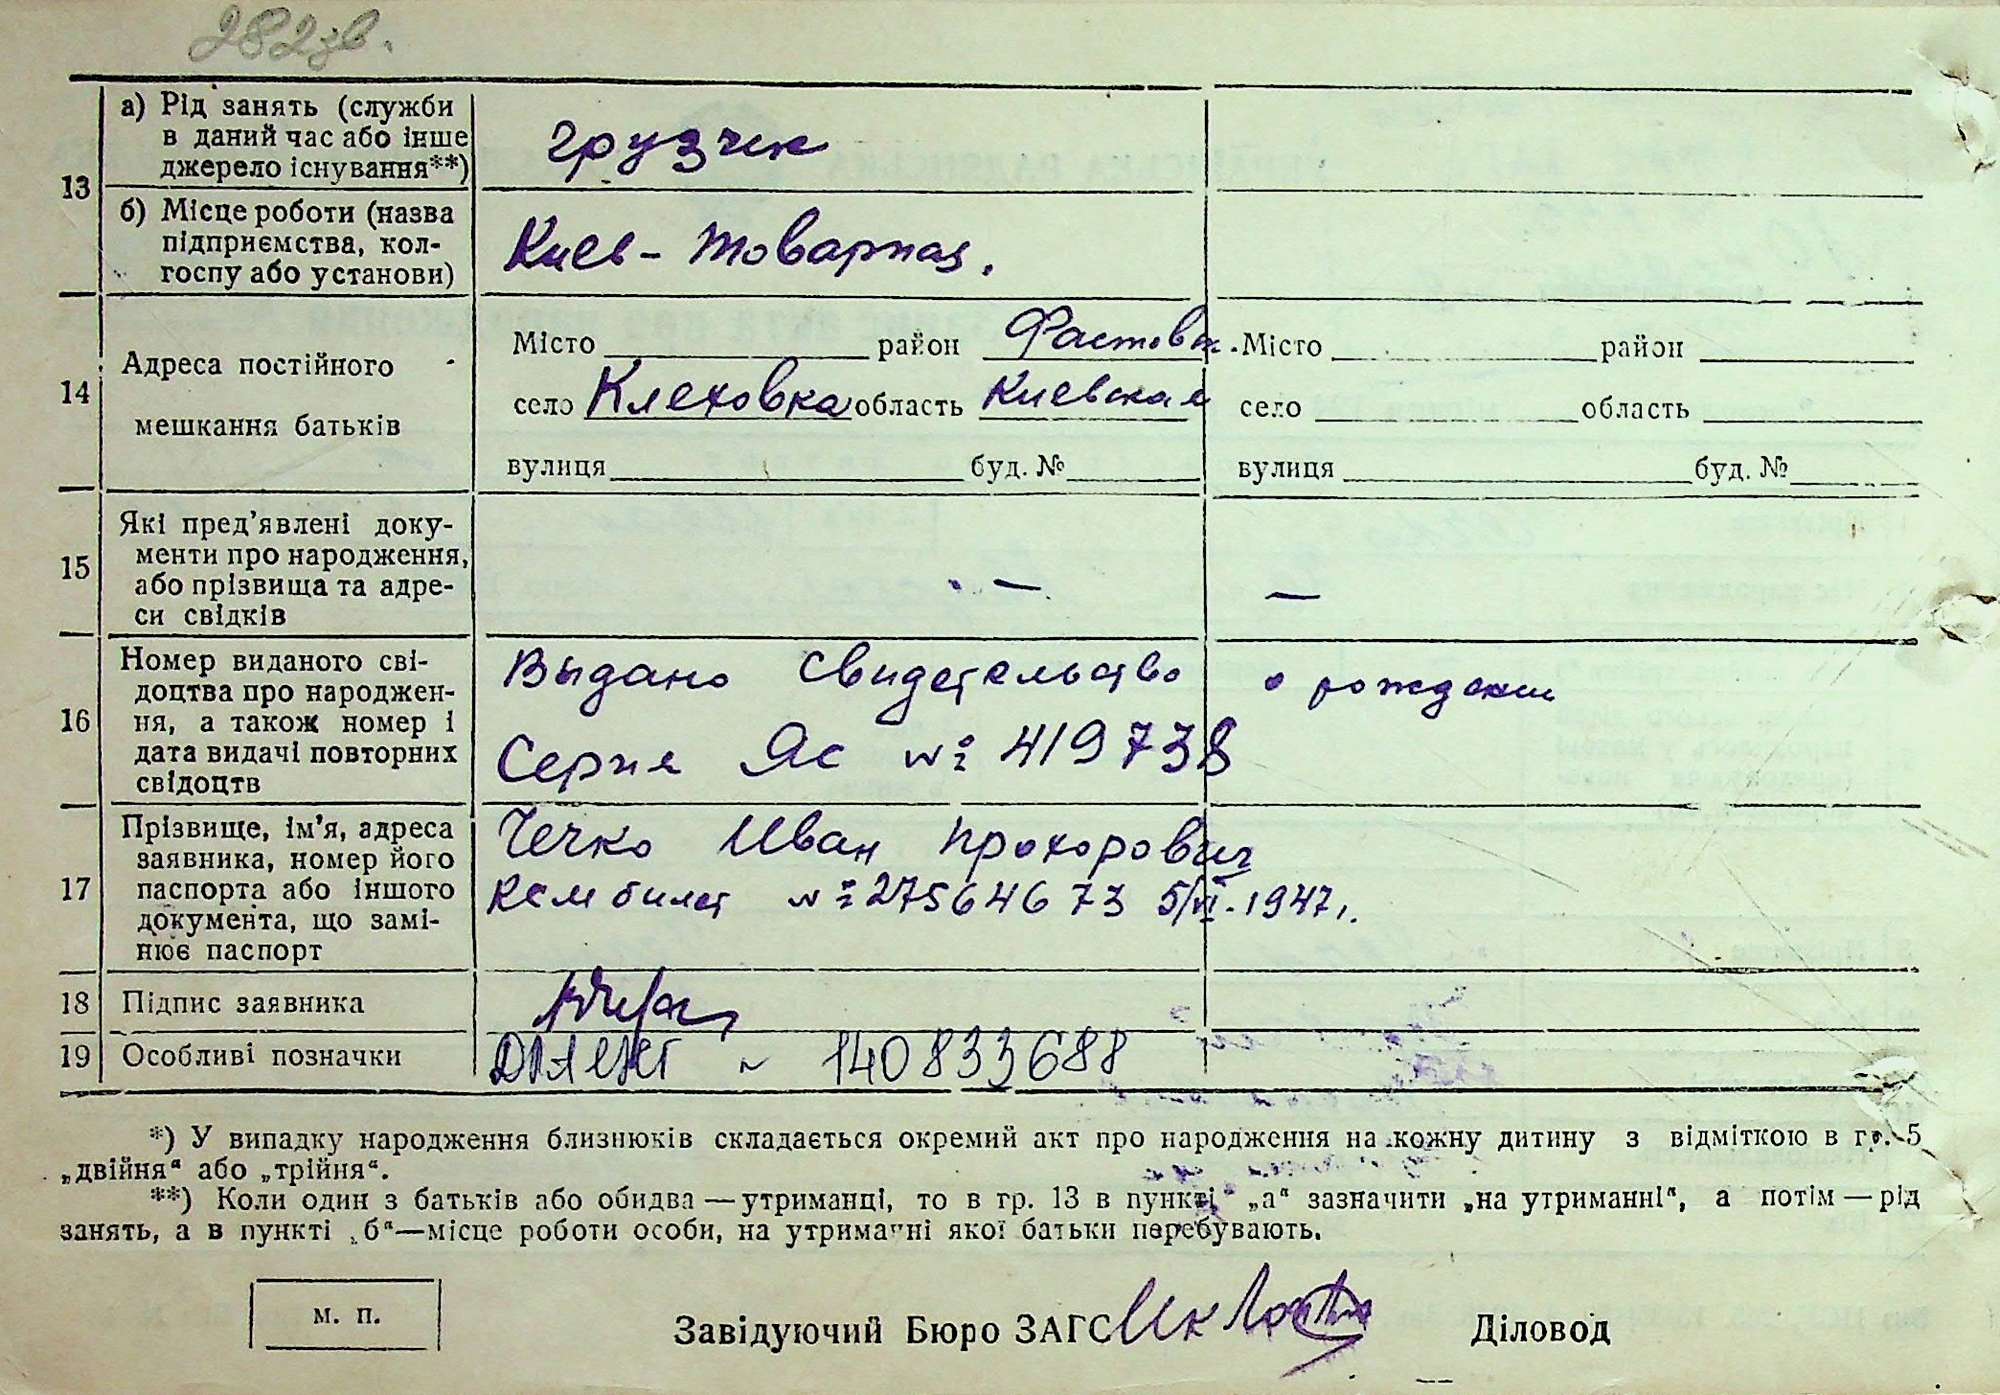 282зв.
а) Рід занять (служби
в даний час або інше
джерело існування**)
грузчик
13
б) Місце роботи (назва
підприємства, кол-
госпу або установи)
Киев-товарная.
14
Адреса постійного
мешкання батьків
Місто район Фастовск.
село Клеховка область Киевская
вулиця буд. №
Місто район
село область
вулиця буд. №
15
Які пред'явлені доку-
менти про народження,
або прізвища та адре-
си свідків
— —
16
Номер виданого сві-
доцтва про народжен-
ня, а також номер і
дата видачі повторних
свідоцтв
Выдано свидетельство о рождении
Серия Яс № 419738
17
Прізвище, ім'я, адреса
заявника, номер його
паспорта або іншого
документа, що замі-
нює паспорт
Чечко Иван Прохорович
№ 27564673 5/VI-1947г.
18 Підпис заявника
19 Особливі позначки
140833688
*) У випадку народження близнюків складається окремий акт про народження на кожну дитину з відміткою в гр. 5
„двійня“ або „трійня“.
**) Коли один з батьків або обидва — утриманці, то в гр. 13 в пункті „а“ зазначити „на утриманні“, а потім — рід
занять, а в пункті „б“—місце роботи особи, на утриманні якої батьки перебувають.
м. п.
Завідуючий Бюро ЗАГС
Діловод